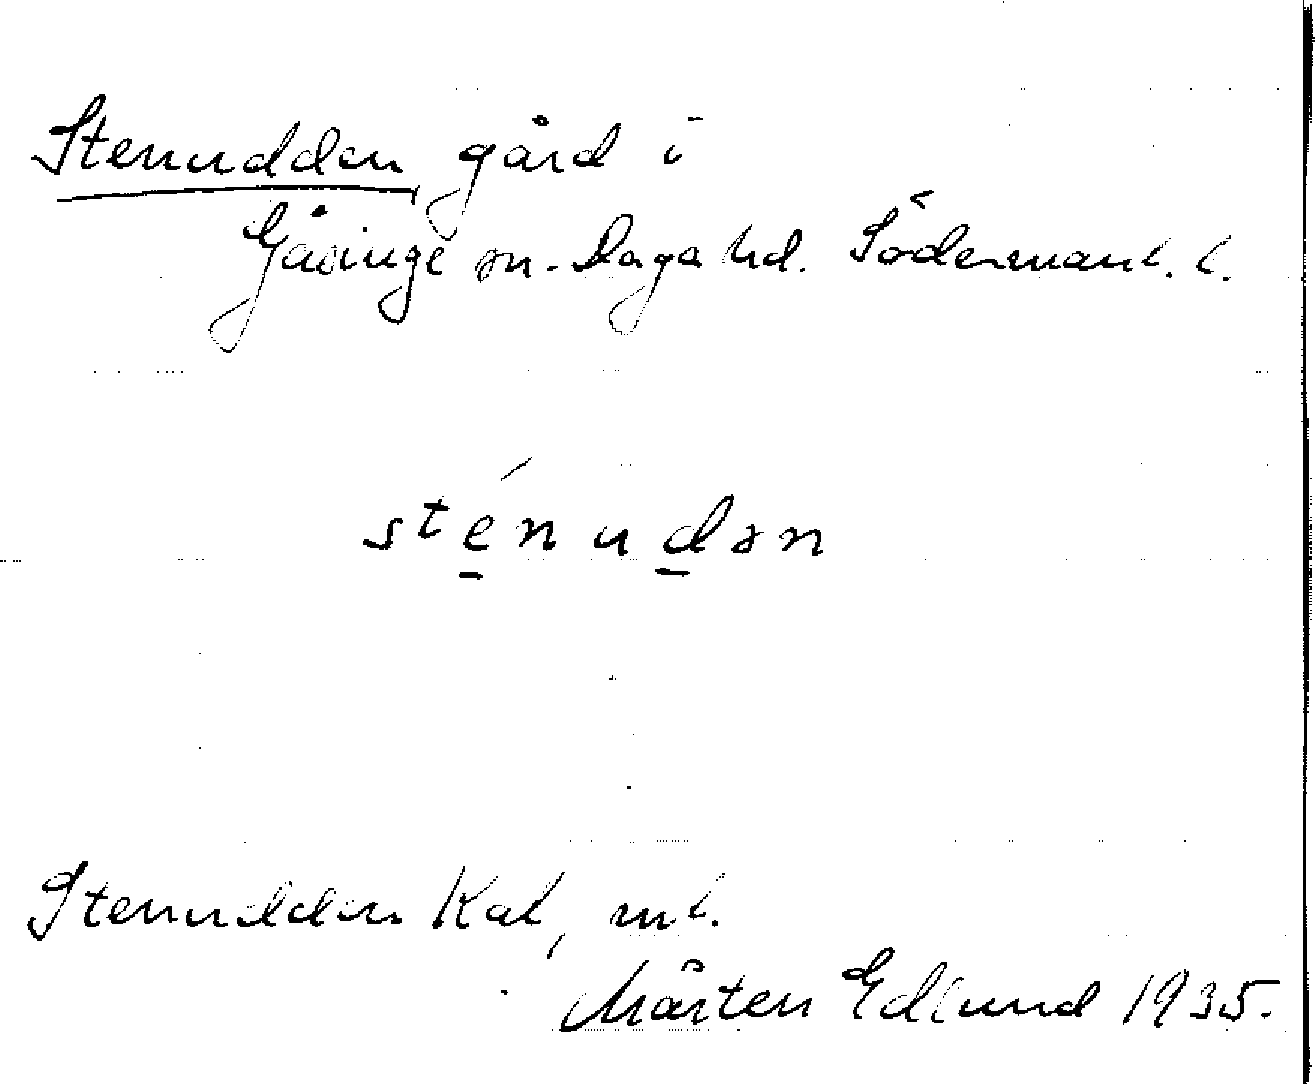 Stenudden gård i
Gåsinge sn. Daga hd. Södermanl. l.
sténudən
Stenudden Kat, mt.
Mårten Edlund 1935.